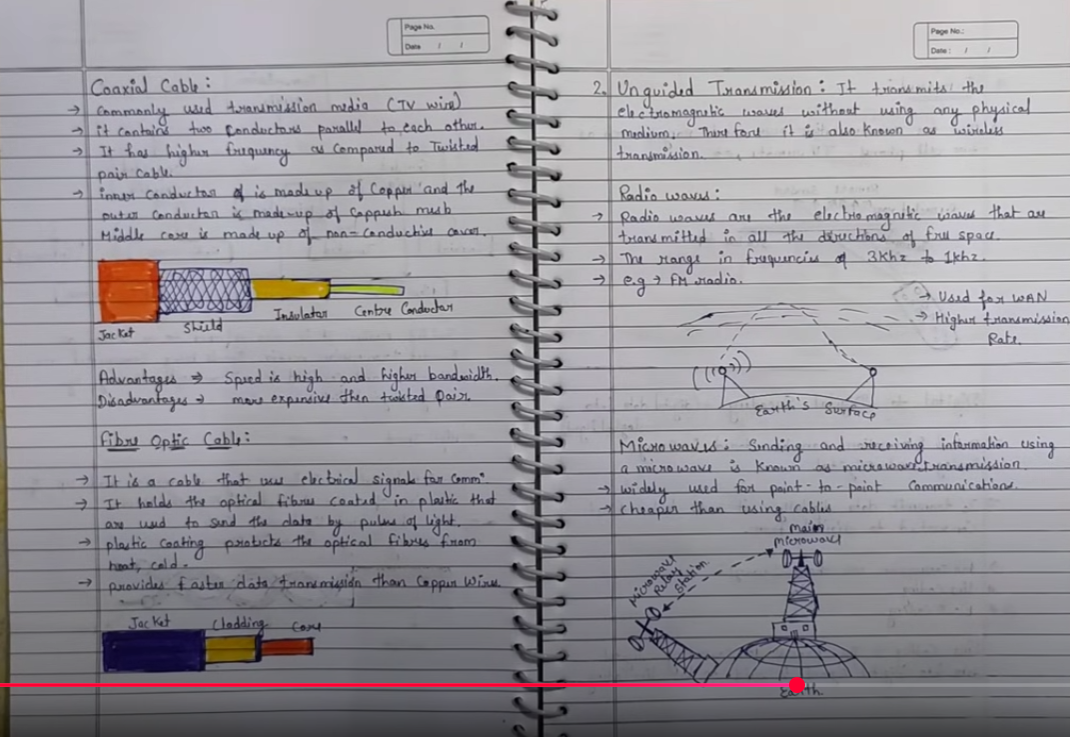 Page No.
Date / /
Coaxial Cable:
→ Commonly used transmission media (TV wire)
→ it contains two conductors parallel to each other.
→ It has higher frequency as compared to Twisted
pair cable.
→ inner conductor of is made up of Copper and the
outer conductor is made-up of Copper mesh
Middle core is made up of non-conductive cover.
Jacket
Shield
Insulator
Centre Conductor
Advantages → Speed is high and higher bandwidth.
Disadvantages → more expensive then twisted pair
Fibre Optic Cable:
→ It is a cable that uses electrical signals for commn
→ It holds the optical fibres coated in plastic that
are used to send the data by pulses of light.
→ plastic coating protects the optical fibres from
heat, cold.
→ provides faster data transmission than Copper wire
Jacket
Cladding
Core
Page No.:
Date: / /
2. Unguided Transmission: It transmits the
electromagnetic waves without using any physical
medium. Therefore it is also known as wireless
transmission.
Radio waves:
→ Radio waves are the electromagnetic waves that are
transmitted in all the directions of free space.
→ The range in frequencies of 3Khz to 1khz.
→ e.g → FM radio.
→ Used for WAN
→ Higher transmission
Rate.
Earth's Surface
Microwaves: Sending and receiving information using
a microwave is known as microwave transmission.
→ widely used for point-to-point communications.
→ cheaper than using cables
main
microwave
Microwave
Relay
Station
Earth.